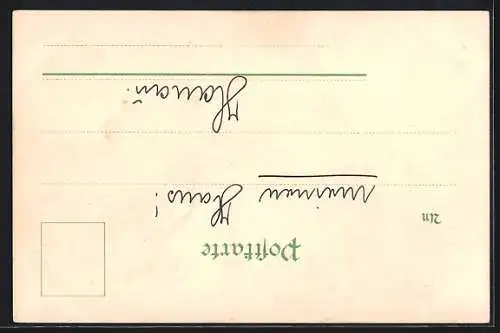 Postkarte
An
meinen Hans!
Hanau.